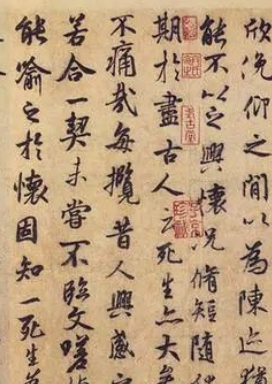 欣俛仰之間以為陳迹猶
能不以之興懷况脩短隨
期於盡古人云死生亦大矣
不痛哉每攬昔人興感
若合一契未嘗不臨文嗟
能喻之於懷固知一死生